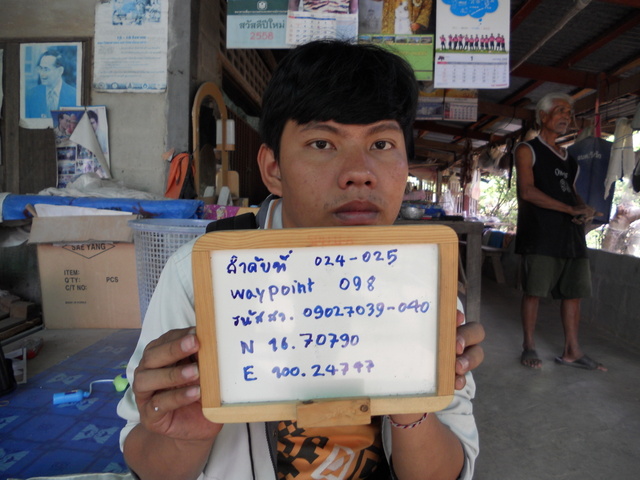 สวัสดีปีใหม่
2556
SAE YANG
ITEM:
Q'TY: PCS
C/T NO:
ลำดับที่ 024-025
waypoint 098
รหัสสว. 09027039-040
N 16.70790
E 100.24797